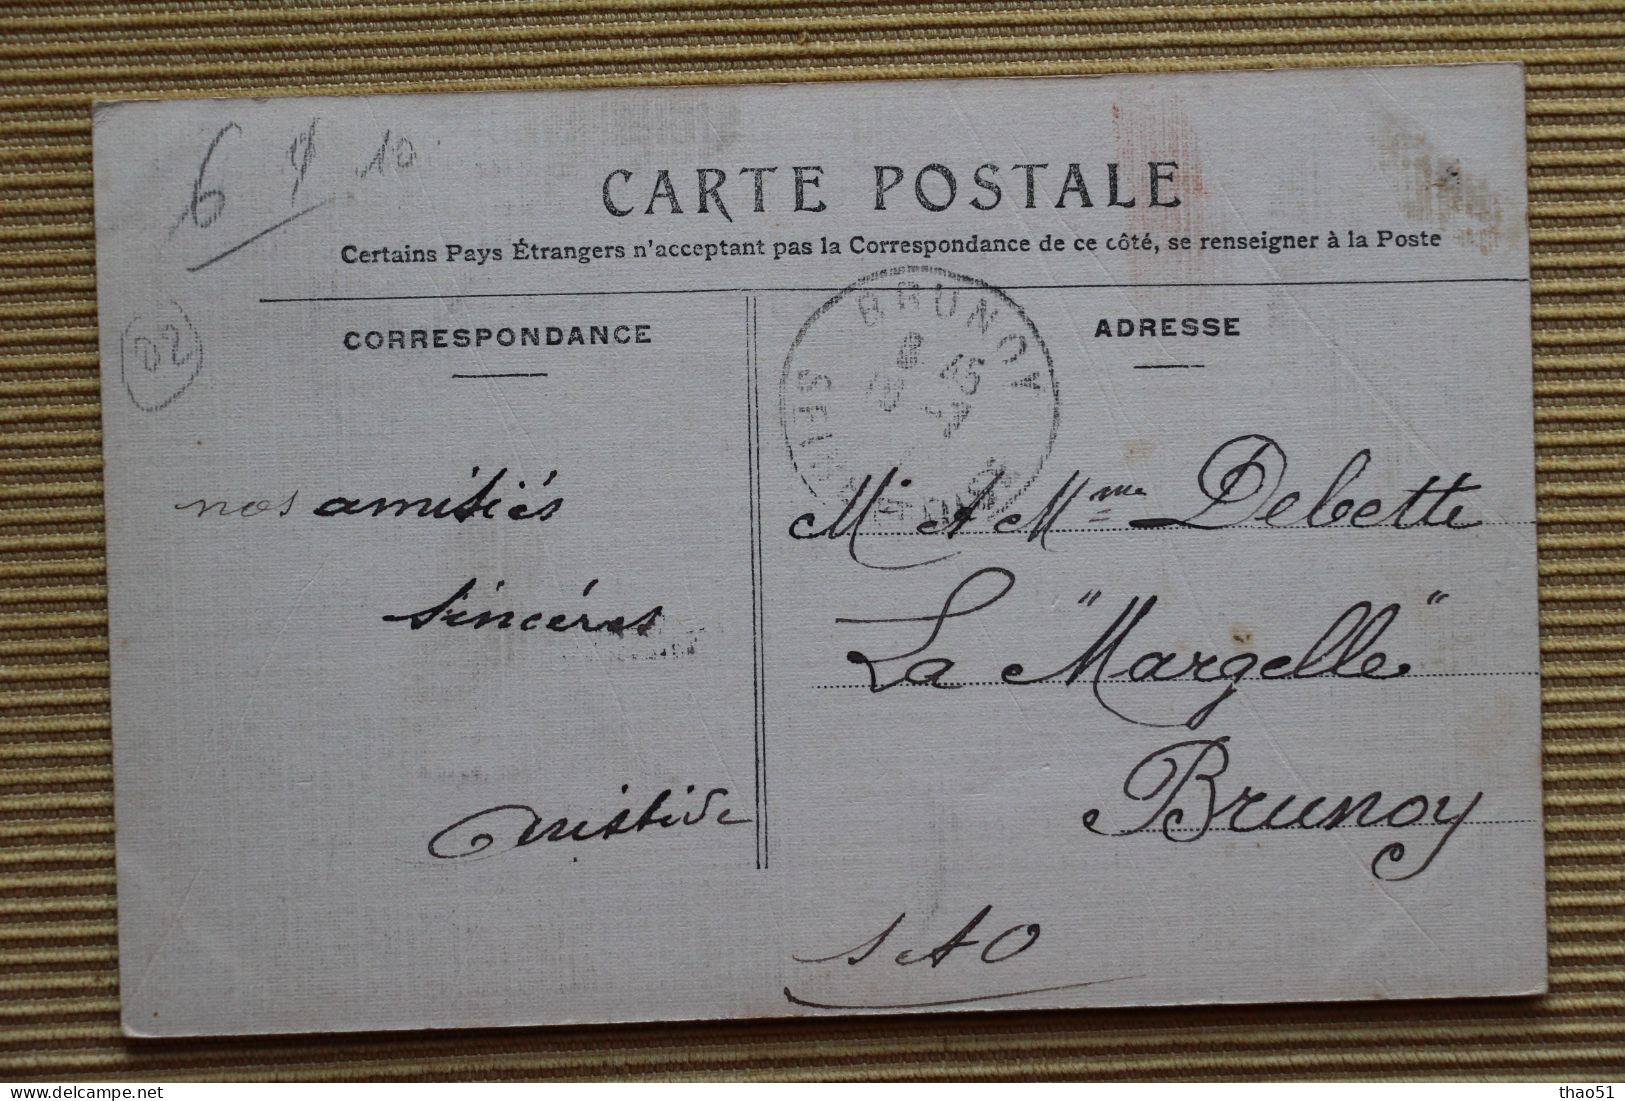 6 7 10
CARTE POSTALE
Certains Pays Étrangers n'acceptant pas la Correspondance de ce côté, se renseigner à la Poste
CORRESPONDANCE
ADRESSE
02
BRUNOY
SEINE ET OISE
nos amitiés
sincéres
M. et Mme Debette
La "Margelle"
Brunoy
S et O
thao51